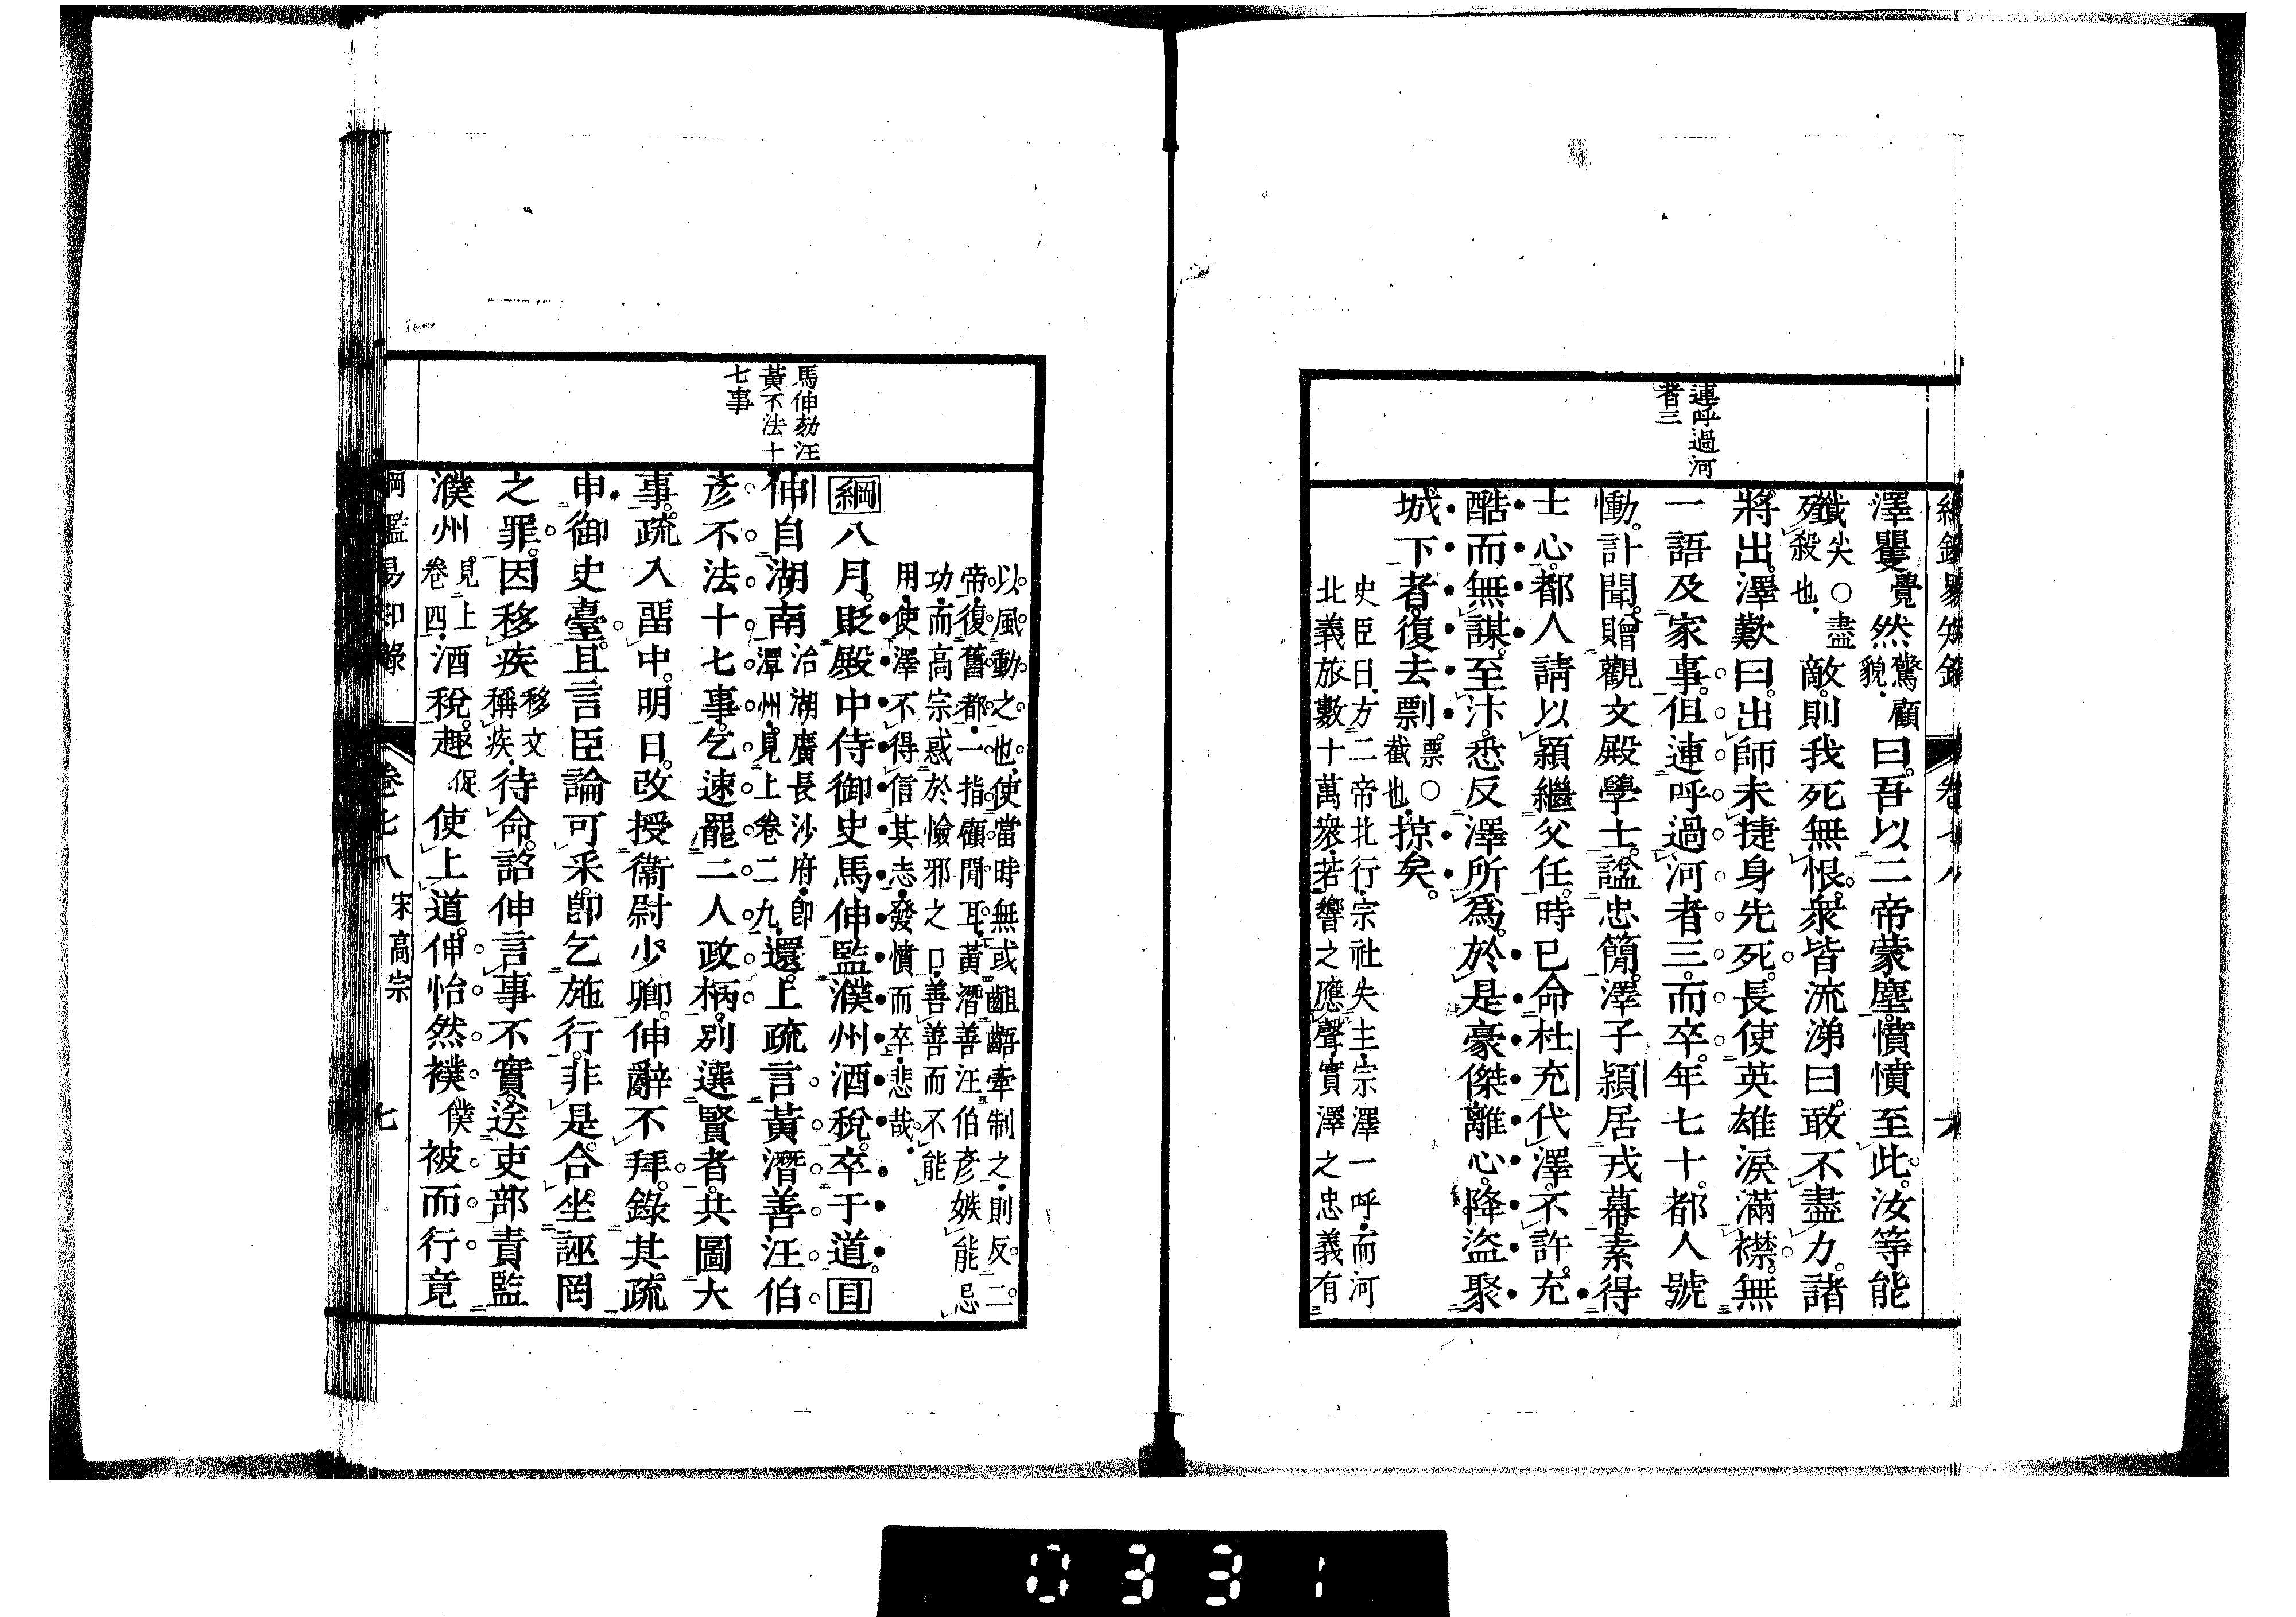 連呼過河
者三
澤矍覺然驚顧貌曰。吾以二帝蒙塵。憤憤至此。汝等能
殲尖○盡殺也敵。則我死無恨。衆皆流涕曰。敢不盡力。諸
將出。澤歎曰。出師未捷身先死。長使英雄淚滿襟。無
一語及家事。但連呼過河者三。而卒。年七十。都人號
慟。訃聞。贈觀文殿學士。諡忠簡。澤子穎居戎幕。素得
士心。都人請以穎繼父任。時已命杜充代澤。不許。充
酷而無謀。至汴。悉反澤所爲。於是豪傑離心。降盜聚
城下者。復去剽票○截也掠矣。
史臣曰。方二帝北行。宗社失主。宗澤一呼。而河
北義旅數十萬衆。若響之應聲。實澤之忠義有
卷七八
馬伸劾汪
黃不法十
七事
以風動之也。使當時無或齟齬牽制之。則反二
帝。復舊都。一指顧閒耳。黃潛善汪伯彥嫉能忌
功。而高宗惑於憸邪之口。善善而不能
用。使澤不得信其志。發憤而卒。悲哉。
綱八月。貶殿中侍御史馬伸監濮州酒稅。卒于道。目
伸自湖南治湖廣長沙府。卽潭州。見上卷二九。還。上疏言黃潛善汪伯
彥不法十七事。乞速罷二人政柄。別選賢者。共圖大
事。疏入。畱中。明日。改授衞尉少卿。伸辭不拜。錄其疏
申御史臺。且言臣論可采。卽乞施行。非是。合坐誣罔
之罪。因移疾移文稱疾。待命。詔伸言事不實。送吏部責監
濮州見上卷四。酒稅。趣促使上道。伸怡然襆僕被而行。竟
綱鑑易知錄 卷七八 宋高宗 七
0331